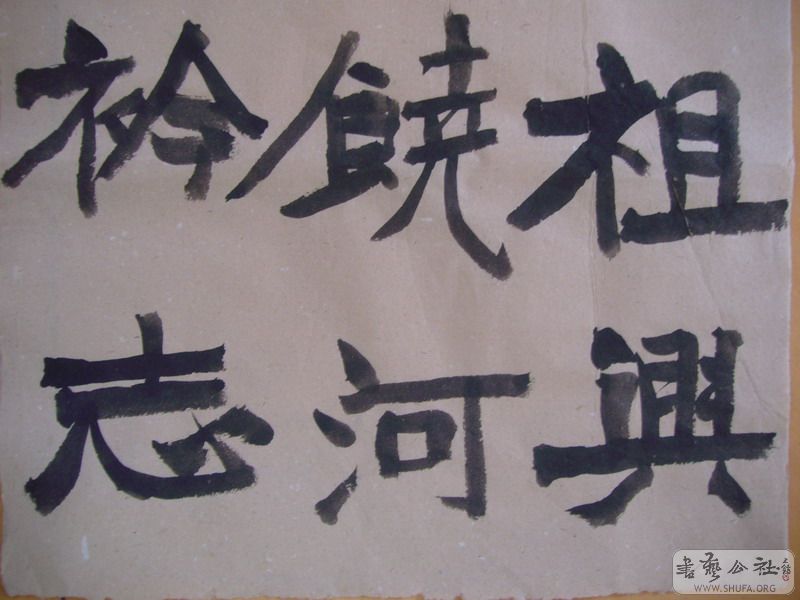 祖興
饒河
衿志
書藝公社
WWW.SHUFA.ORG